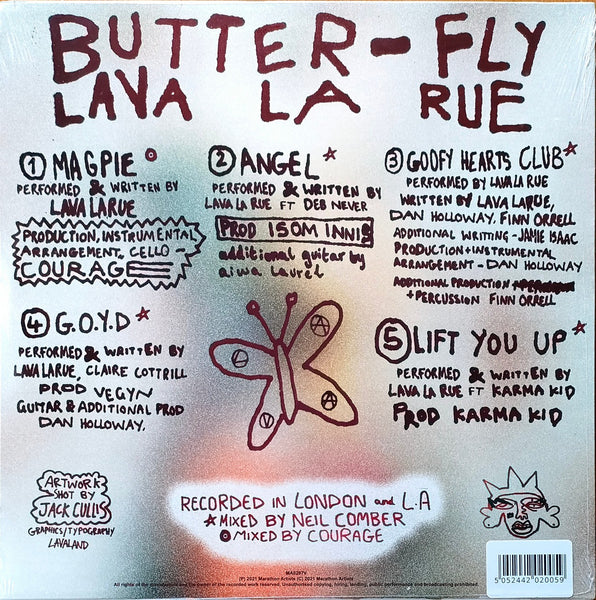 BUTTER-FLY
LAVA LA RUE
1 MAGPIE
PERFORMED & WRITTEN BY
LAVA LARUE
PRODUCTION, INSTRUMENTAL
ARRANGEMENT, CELLO -
COURAGE
2 ANGEL ★
PERFORMED & WRITTEN BY
LAVA LA RUE FT DEB NEVER
PROD ISOM INNIS
additional guitar by
aiwa laurel
3 GOOFY HEARTS CLUB ★
PERFORMED BY LAVA LA RUE
WRITTEN BY LAVA LARUE,
DAN HOLLOWAY, FINN ORRELL
ADDITIONAL WRITING - JAMIE ISAAC
PRODUCTION + INSTRUMENTAL
ARRANGEMENT - DAN HOLLOWAY
ADDITIONAL PRODUCTION
+ PERCUSSION FINN ORRELL
4 G.O.Y.D ★
PERFORMED & WRITTEN BY
LAVA LARUE, CLAIRE COTTRILL
PROD VEGYN
GUITAR & ADDITIONAL PROD
DAN HOLLOWAY.
L A V A
5 LIFT YOU UP ★
PERFORMED & WRITTEN BY
LAVA LA RUE FT KARMA KID
PROD KARMA KID
ARTWORK
SHOT BY
JACK CULLIS
GRAPHICS/TYPOGRAPHY
LAVALAND
RECORDED IN LONDON and L.A
★ MIXED BY NEIL COMBER
MIXED BY COURAGE
MA0297V
(P) 2021 Marathon Artists (C) 2021 Marathon Artists
All rights of the manufacturer and the owner of the recorded work reserved. Unauthorised copying, hiring, lending, public performance and broadcasting prohibited.
5 052442 020059